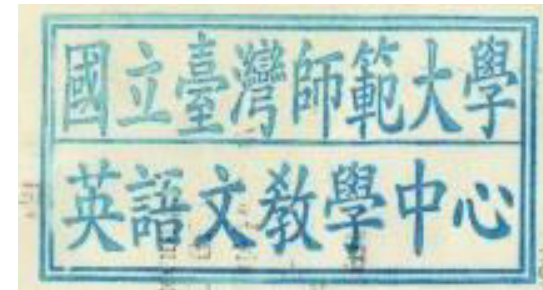 國立臺灣師範大學
英語文教學中心